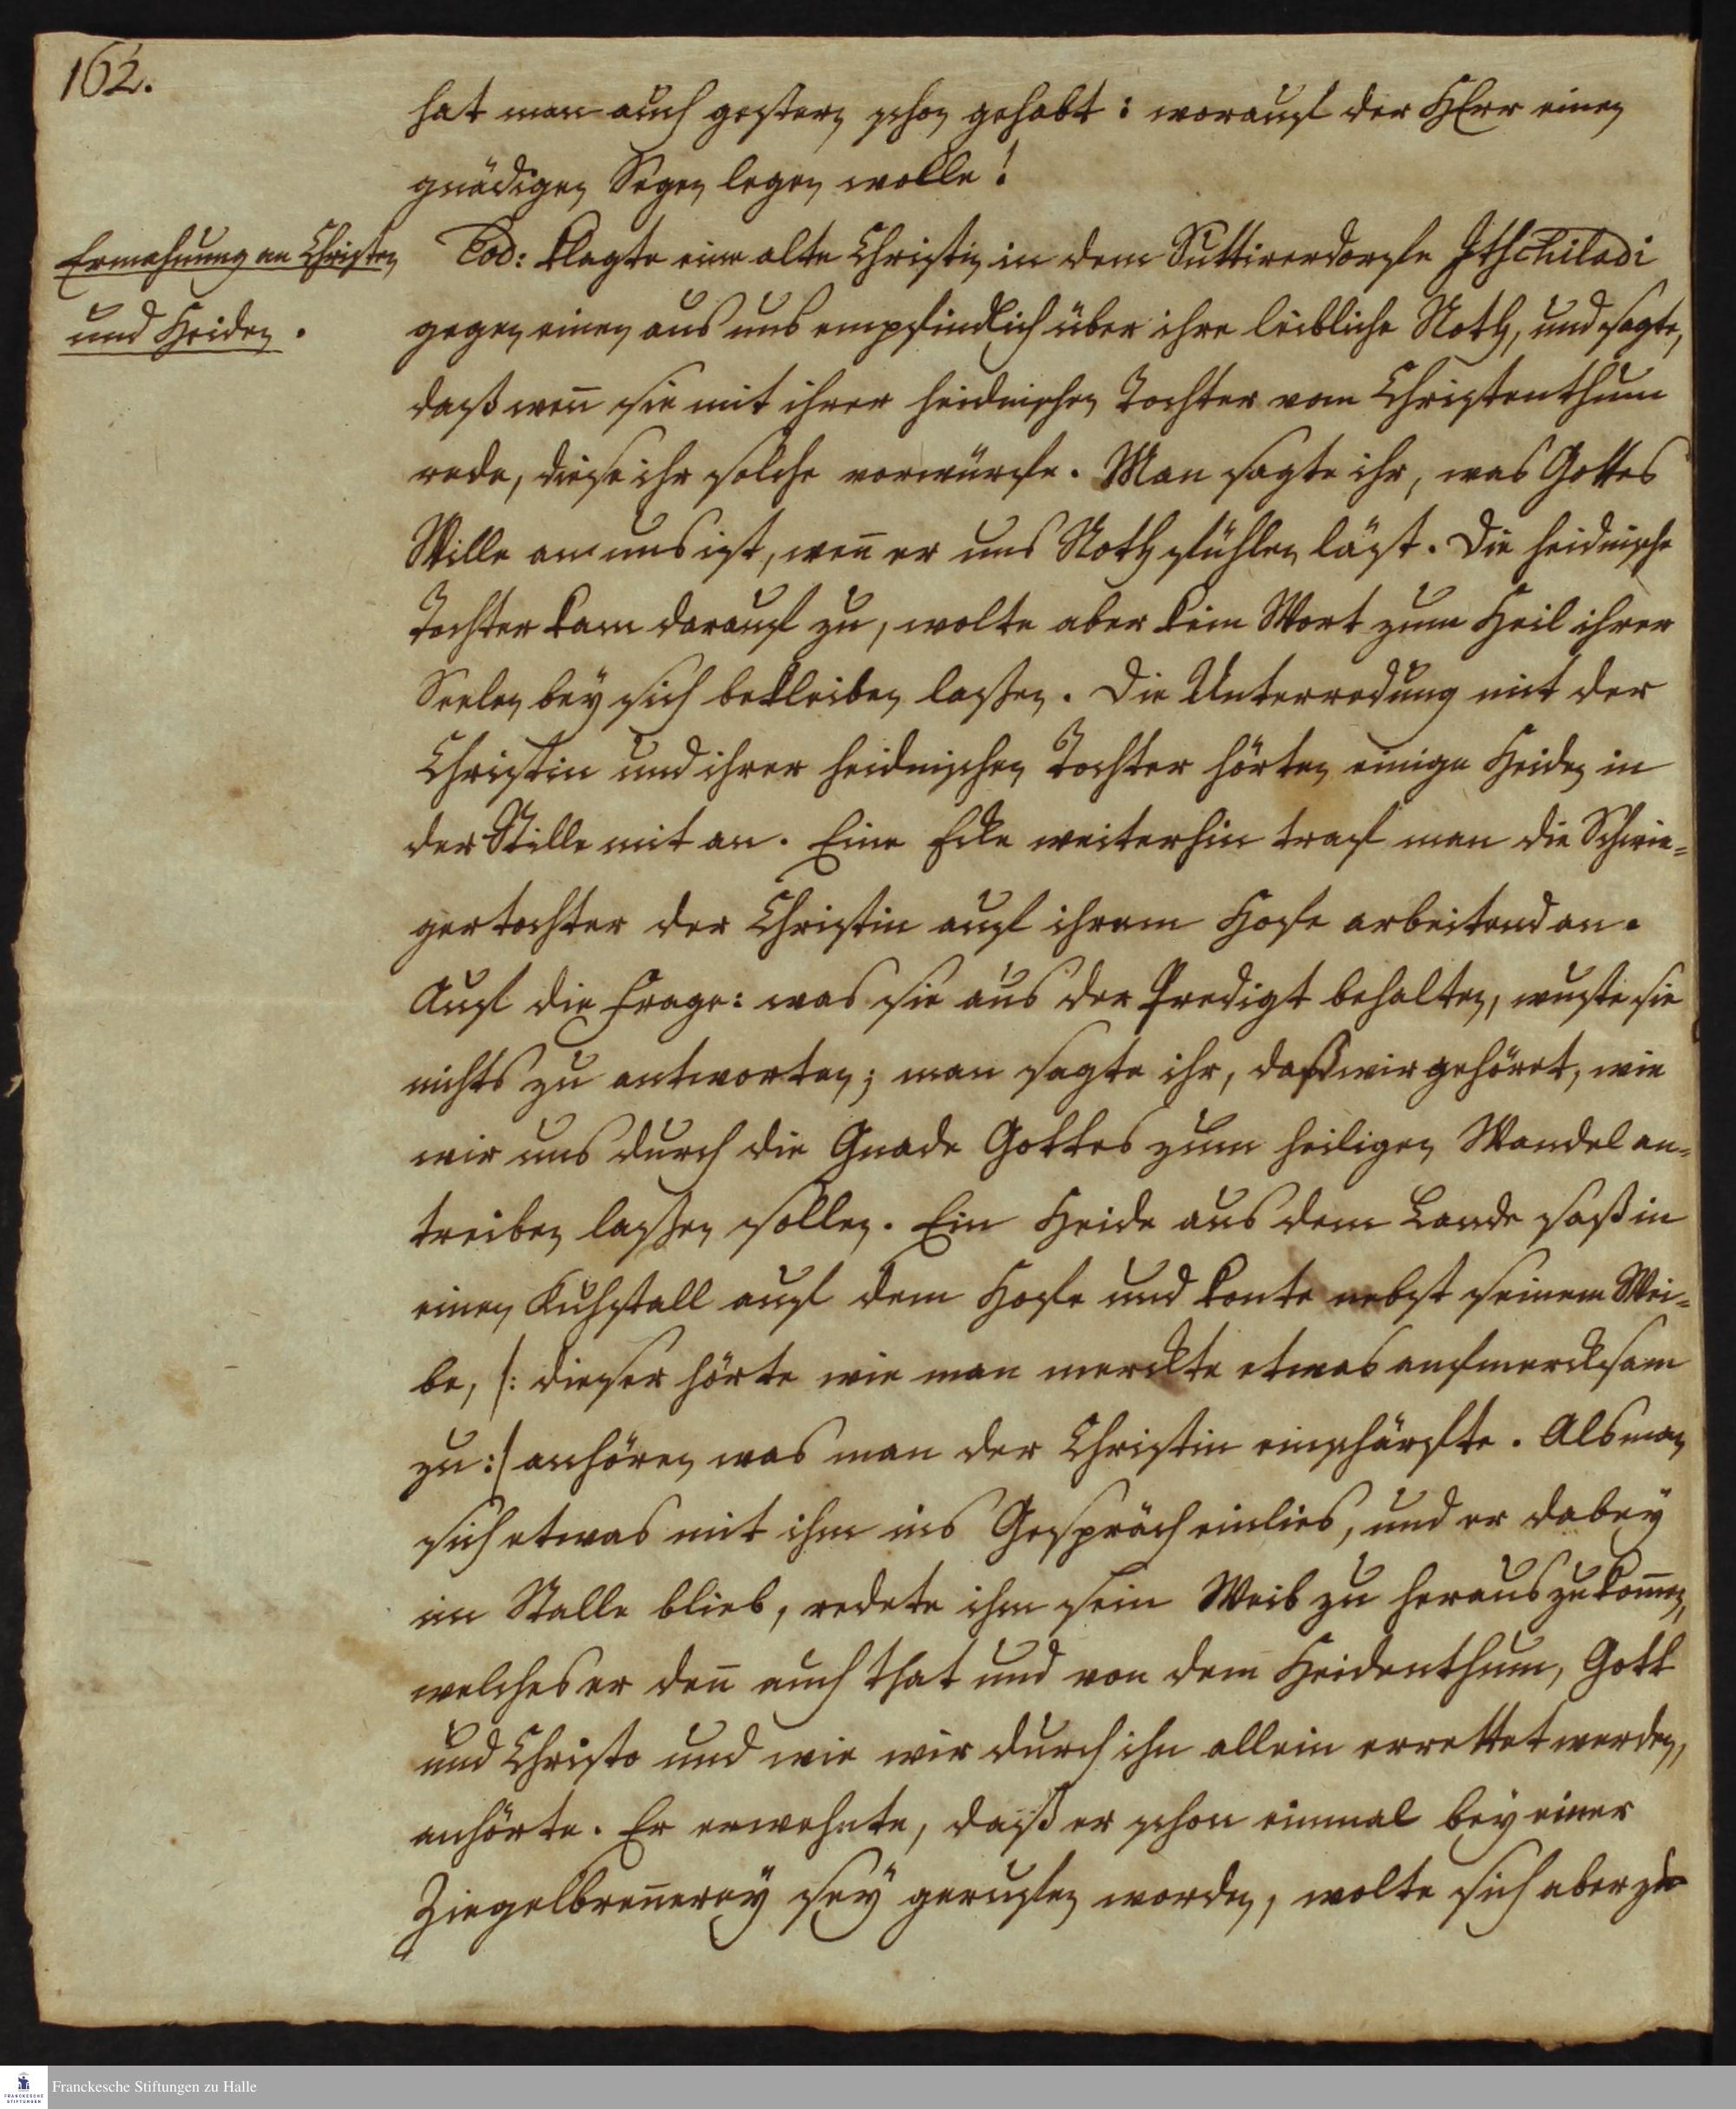 162.
hat man auch gestern schon gehabt: worauf der HErr einen
gnädigen Segen legen wolle!
Ermahnung an Christen
und Heiden.
Eod: klagte eine alte Christin in dem Suttirerdorfe Itschiladi
gegen einen aus uns empfindlich über ihre leibliche Noth, und sagte,
daß weñ sie mit ihrer heidnischen Tochter vom Christenthum
rede, diese ihr solche vorwürfe. Man sagte ihr, was Gottes
Wille an uns ist, weñ er uns Noth fühlen läst. Die heidnische
Tochter kam darauf zu, wolte aber kein Wort zum Heil ihrer
Seelen bey sich bekleiben laßen. Die Unterredung mit der
Christin und ihrer heidnischen Tochter hörten einige Heiden in
der Stille mit an. Eine Ecke weiterhin traf man die Schwie=
gertochter der Christin auf ihrem Hofe arbeitend an.
Auf die Frage: was sie aus der Predigt behalten, wuste sie
nichts zu antworten; man sagte ihr, daß wir gehöret, wie
wir uns durch die Gnade Gottes zum heiligen Wandel an=
treiben laßen sollen. Ein Heide aus dem Lande saß in
einen Kuhstall auf dem Hofe und konte nebst seinem Wei=
be, /: dieser hörte wie man merckte etwas aufmercksam
zu :/ anhören was man der Christin einschärfte. Als man
sich etwas mit ihm ins Gespräch einlies, und er dabey
im Stalle blieb, redete ihm sein Weib zu heraus zu kom̃en,
welches er deñ auch that und von dem Heidenthum, Gott
und Christo und wie wir durch ihn allein errettet werden,
anhörte. Er erwehnte, daß er schon einmal bey einer
Ziegelbreñerey sey gerufen worden, wolte sich aber zu
Franckesche Stiftungen zu Halle
FRANCKESCHE
STIFTUNGEN